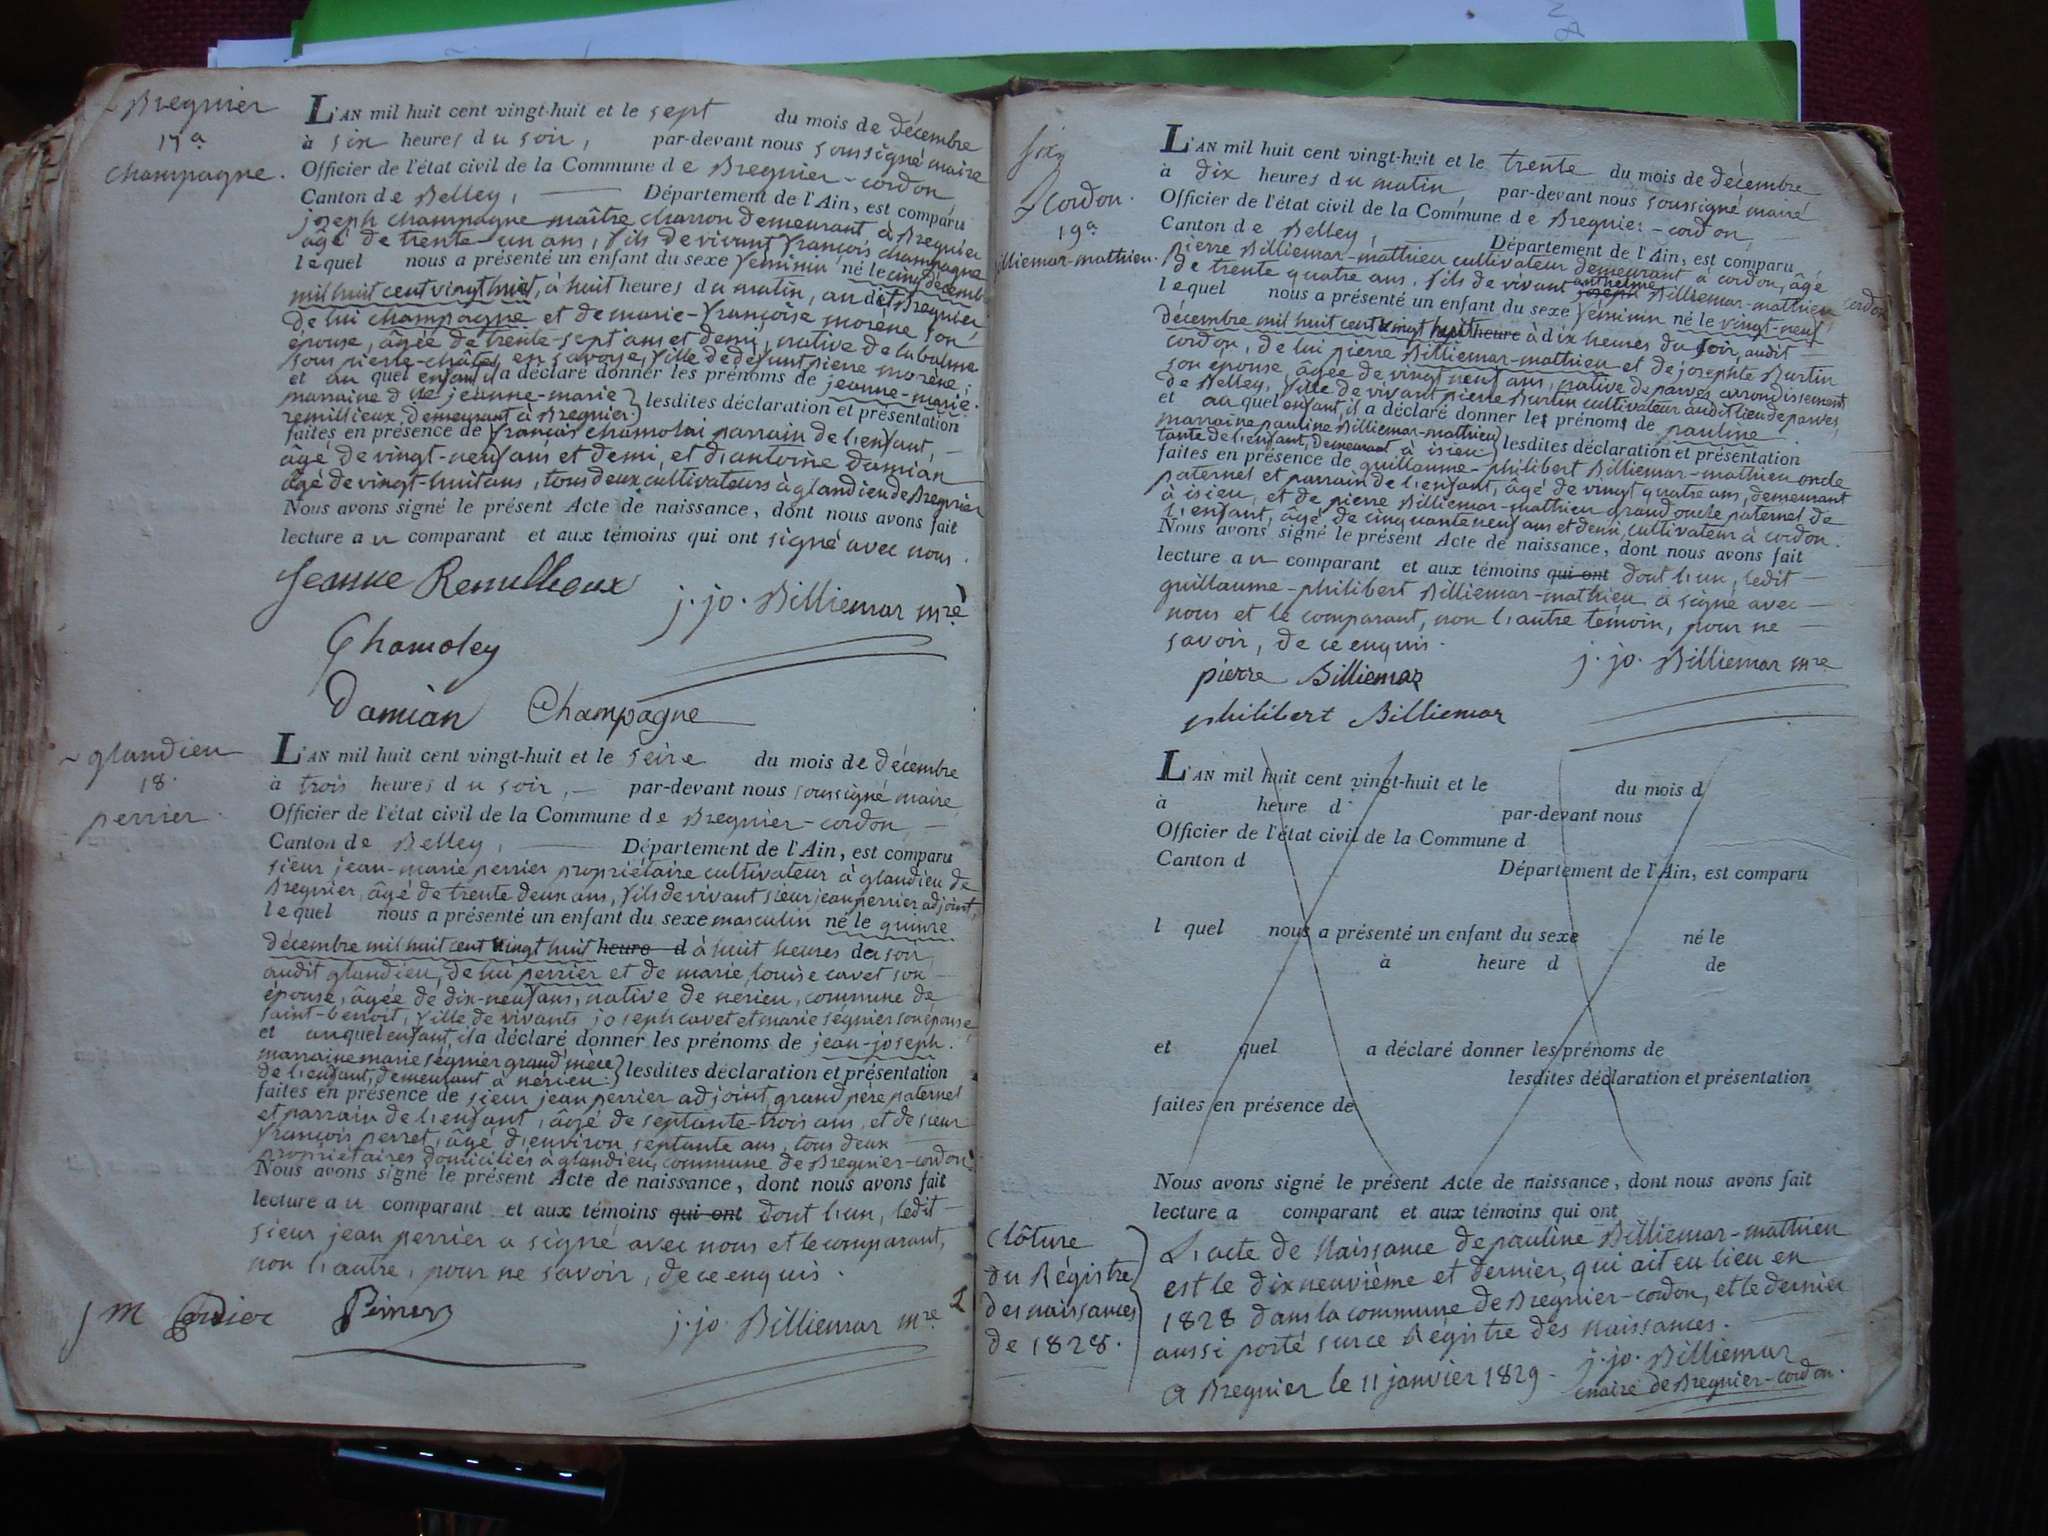 Bregnier
17e
champagne.
L'AN mil huit cent vingt-huit et le sept du mois de décembre
à six heures du soir, par-devant nous soussigné maire
Officier de l'état civil de la Commune de Bregnier-cordon,
Canton de Belley, Département de l'Ain, est comparu
joseph champagne maître charron demeurant à Bregnier
âgé de trente un ans, fils de vivant françois champagne
lequel nous a présenté un enfant du sexe féminin né le cinq décemb
mil huit cent vingt huit, à huit heures du matin, audit Bregnier
de lui champagne et de marie-françoise morène son
épouse, âgée de trente-sept ans et demi, native de labalme
sous pierre-châtel en savoye, fille de défunt pierre morène;
et au quel enfant il a déclaré donner les prénoms de jeanne-marie.
marraine dlle jeanne-marie
remillieux demeurant à Bregnier. lesdites déclaration et présentation
faites en présence de françois chamolay parrain de l'enfant,
âgé de vingt-neuf ans et demi, et d'antoine damian
âgé de vingt-huit ans, tous deux cultivateurs à glandieu de Bregnier
Nous avons signé le présent Acte de naissance, dont nous avons fait
lecture au comparant et aux témoins qui ont signé avec nous.
Jeanne Remillieux
j. jo. Billiemar mre
Chamoley
Damian Champagne
glandieu
18.
perrier.
L'AN mil huit cent vingt-huit et le seize du mois de décembre
à trois heures du soir, par-devant nous soussigné maire
Officier de l'état civil de la Commune de Bregnier-cordon,
Canton de Belley, Département de l'Ain, est comparu
sieur jean-marie perrier propriétaire cultivateur à glandieu de
Bregnier, âgé de trente deux ans, fils de vivant sieur jean perrier adjoint,
lequel nous a présenté un enfant du sexe masculin né le quinze
décembre mil huit cent vingt huit heure d à huit heures du soir
audit glandieu, de lui perrier et de marie louise cavet son
épouse, âgée de dix-neuf ans, native de nerieu, commune de
saint-benoit, fille de vivants joseph cavet et marie ségnier son épouse
et auquel enfant, il a déclaré donner les prénoms de jean-joseph.
marraine marie ségnier grand'mère
de l'enfant, demeurant à nérieu. lesdites déclaration et présentation
faites en présence de sieur jean perrier adjoint, grand père paternel
et parrain de l'enfant, âgé de septante-trois ans, et de sieur
françois perret, âgé d'environ septante ans, tous deux
propriétaires domiciliés à glandieu, commune de Bregnier-cordon.
Nous avons signé le présent Acte de naissance, dont nous avons fait
lecture au comparant et aux témoins qui ont dont l'un, ledit
sieur jean perrier a signé avec nous et le comparant,
non l'autre, pour ne savoir, de ce enquis.
j. jo. Billiemar mre
Cordon.
19e
illiemar-mathieu.
L'AN mil huit cent vingt-huit et le trente du mois de décembre
à dix heures du matin, par-devant nous soussigné maire
Officier de l'état civil de la Commune de Bregnier-cordon,
Canton de Belley, Département de l'Ain, est comparu
pierre Billiemar-mathieu cultivateur demeurant à cordon, âgé
de trente quatre ans, fils de vivant joseph anthelme Billiemar-mathieu, cordon
lequel nous a présenté un enfant du sexe féminin né le vingt-neuf
décembre mil huit cent vingt huit heure à dix heures du soir, audit
cordon, de lui pierre Billiemar-mathieu et de josephte Burtin
son épouse, âgée de vingt neuf ans, native de parves arrondissement
de Belley, fille de vivant pierre Burtin cultivateur audit lieu de parves,
et au quel enfant, il a déclaré donner les prénoms de pauline.
marraine pauline Billiemar-mathieu
tante de l'enfant, demeurant à isieu lesdites déclaration et présentation
faites en présence de guillaume-philibert Billiemar-mathieu oncle
paternel et parrain de l'enfant, âgé de vingt quatre ans, demeurant
à isieu, et de pierre Billiemar-mathieu grand oncle paternel de
l'enfant, âgé de cinquante neuf ans et demi, cultivateur à cordon.
Nous avons signé le présent Acte de naissance, dont nous avons fait
lecture au comparant et aux témoins qui ont dont l'un, ledit
guillaume-philibert Billiemar-mathieu a signé avec
nous et le comparant, non l'autre témoin, pour ne
savoir, de ce enquis.
j. jo. Billiemar mre
pierre Billiemaz
philibert Billiemaz
L'AN mil huit cent vingt-huit et le du mois d
à heure d par-devant nous
Officier de l'état civil de la Commune d
Canton d Département de l'Ain, est comparu
l quel nous a présenté un enfant du sexe né le
à heure d de
et quel a déclaré donner les prénoms de
lesdites déclaration et présentation
faites en présence de
Nous avons signé le présent Acte de naissance, dont nous avons fait
lecture a comparant et aux témoins qui ont
clôture
du Régistre
des naissances
de 1828.
L'acte de Naissance de pauline Billiemar-mathieu
est le dixneuvième et dernier, qui ait eu lieu en
1828 dans la commune de Bregnier-cordon, et le dernier
aussi porté sur ce Régistre des naissances.
a Bregnier le 11 janvier 1829. j. jo. Billiemar
maire de Bregnier-cordon.